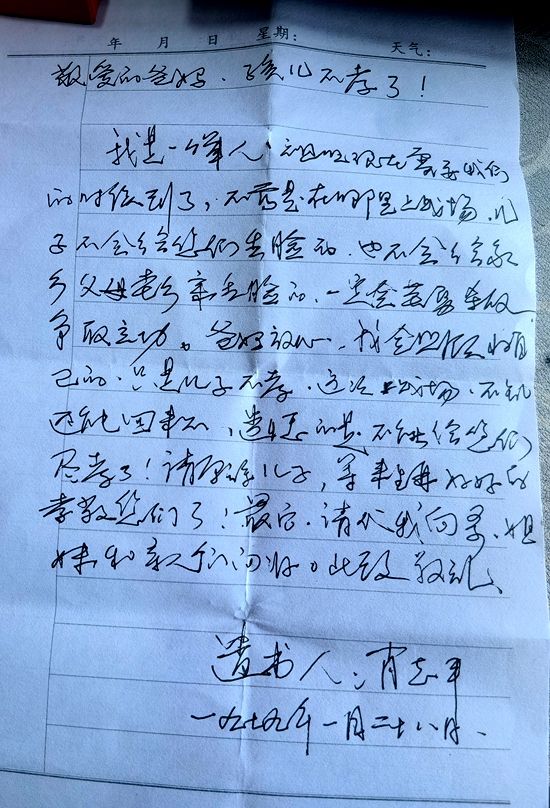 年 月 日 星期： 天气：
敬爱的爸妈、孩儿不孝了！
我是一军人 祖国现在需要我们
的时候到了，不管是在哪里上战场，儿
子不会给您们丢脸的，也不会给家
乡父母老乡亲丢脸的，一定奋勇杀敌
争取立功。爸妈放心，我会照顾好自
己的，只是儿子不孝，这次上战场，不知
还能回来不，遗憾的是不能给您们
尽孝了！请原谅儿子，等来生再好好的
孝敬您们了！最后，请代我向哥、姐
妹和亲人们问好。此致敬礼、
遗书人：肖志平
一九七九年一月二十八日．